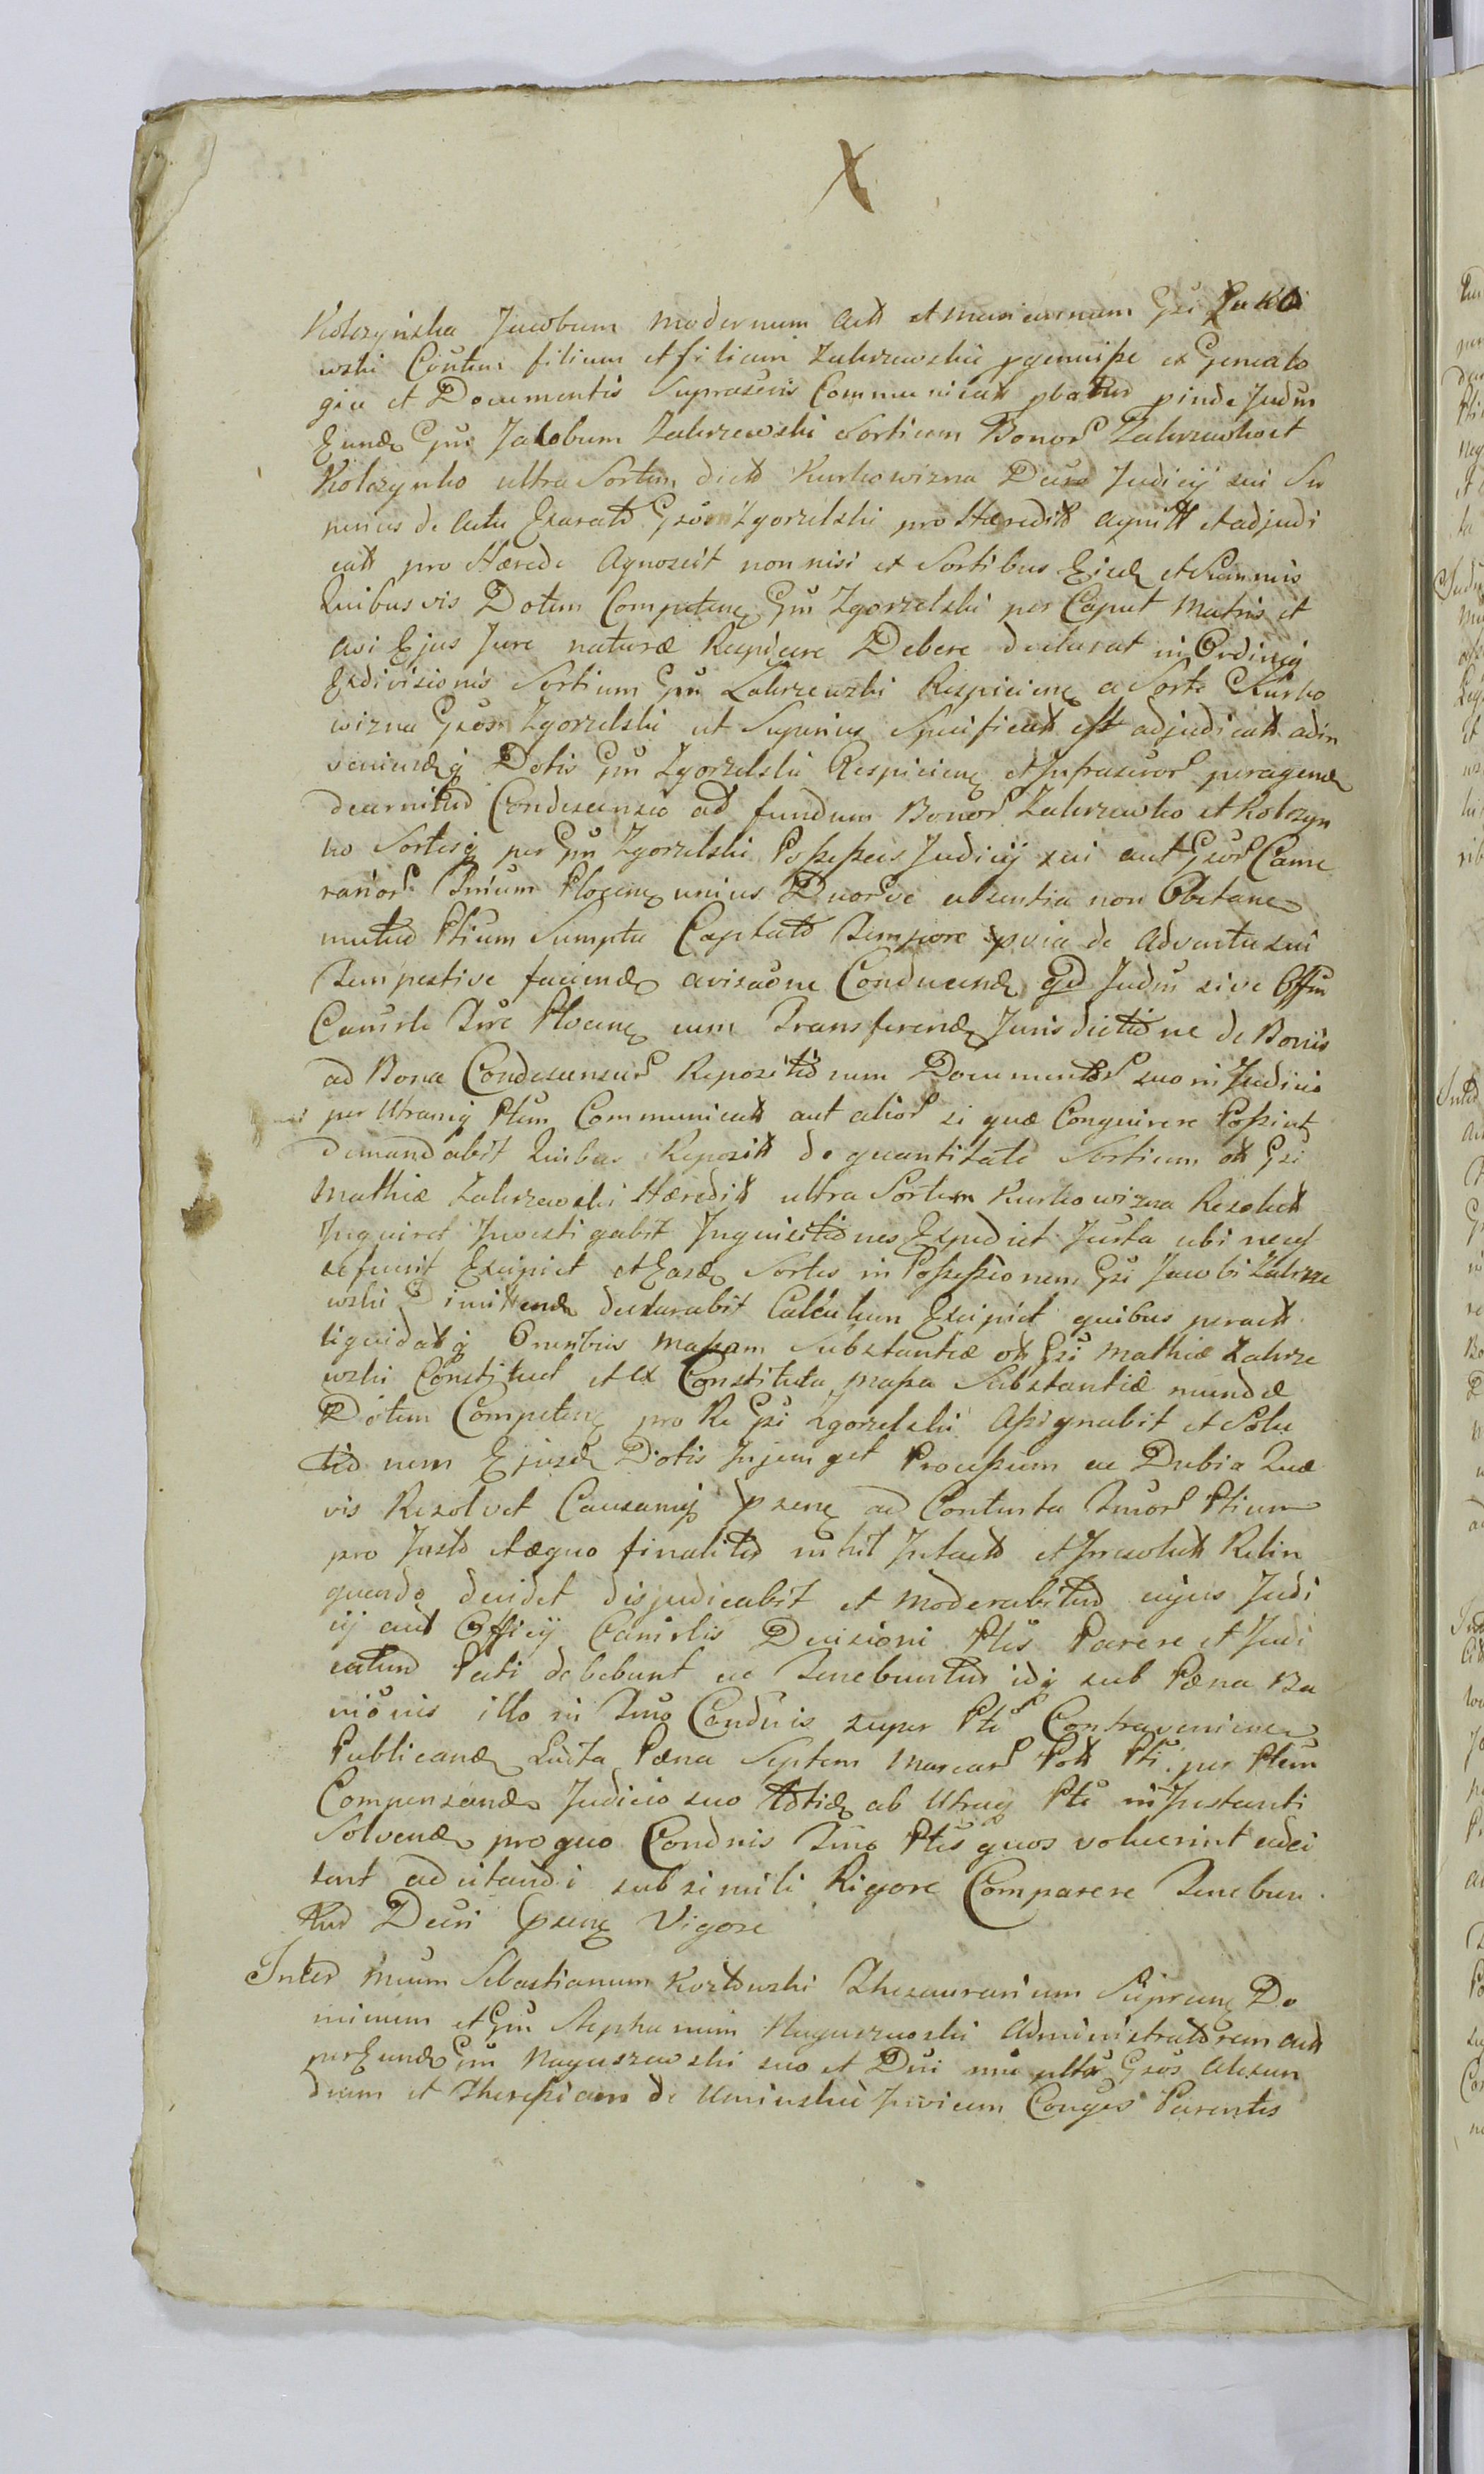 X
Kolczyńska Jacobum modernum Actt et Marianum Gsi Zakr
wski Coñtem filium et filiam Zakrzewskie pgenuiße ex Genealo
gia et Documentis Suprascris Communicatt pbatur pinde Judm
Eund Gm Jacobum Zakrzewski Sortium Bonor Zakrzewko et
Kolczynko ultra Sortem dictt Kurkowizna Decro Judicij sui Su
perius de actu Exaratt Gsor Zgorzelski pro Hæreditt agnitt et adjudi
catt pro Hærede Agnoscit non nisi ex Sortibus Ejusd et Summis
Quibusvis Dotem Competenc Gm Zgorzelski per Caput Matris et
avi Ejus Jure naturæ Respicere Debere declarat in Ordineq
Exdivisionis Sortium Gm Zakrzewski Respicienc a Sorte Kurko
wizna Gsor Zgorzelski ut Superius Specificatt est adjudicatt adin
veniendq Dotis Gm Zgorzelski Respicienc et Infrascror peragend
decernitur Condescensio ad fundum Bonor Zakrzewko et Kolczyn
ko Sortesq per Gm Zgorzelski Poßeßas Judicij sui aut Gsor Came
rarior Trium Plocenc unius Duorve absentia non Obstane
mutuo Ptium Sumptu Captatto Tempore pvia de Adventu sui
Tempestive faciend avisaõne Conducend Qd Judm sive Offm
Camrle Trre Plocenc cum Transferend Jurisdictione de Bonis
ad Bona Condescensur Repositionem Documentor suo in Judicio
per Utramq Ptem Communicatt aut alior si quæ Conquirere Poßint
demandabit Quibus Repositt de quantitate Sortium ott Gsi
Mathiæ Zakrzewski Hæreditt ultra Sortem Kurkowizna Resolutt
Inquiret Investigabit Inquisitiones Expediet Jurta ubi neceß
se fuerit Excipiet et Easd Sortes in Poßeßionem Gsi Jacobi Zakrze
wski Dimittend declarabit Calculum Excipiet quibus peractt
liquidatq Omnibus maßam Substantiæ ott Gsi Mathiæ Zakrze
wski Constituet et ex Constituta maßa Substantiæ mundæ
Dotem Competenc pro Re Gsi Zgorzelski Aßignabit et Solu
tionem Ejusd Dotis Injunget Proceßum ac Dubia Quæ
vis Resolvet Causamq psenc ad Contenta Trmor Ptium
pro Justo et æquo finaliter nihil Intactt et Irresolutt Relin
quendo decidet disjudicabit et moderabitur cujus Judi
cij aut Officij Camrlis Decisioni Ptes Parere et Judi
catum Pati debebunt ac Tenebuntur idq sub Pæna Ba
niõnis illo in Trmo Condnis super Pte Contraveniene
Publicand Luita Pæna Septem Marcar Pott Pti per Ptem
Compensand Judicio suo Totid ab Utraq Pte in Instanti
Solvend pro quo Condnis Trmo Ptes quos voluerint adci
tent adcitandi sub simili Rigore Comparere Tenebun
tur Decri psenc Vigore
Inter Mcum Sebastianum Kozłowski Thesaurarium Suprenc Do
minum et Gm Stephanum Naguszewski Administratorem Actt
per Eund Gm Naguszewski suo et Dni sui nõie ultr Gsos Alexan
drum et Theressiam de Umińskie Invicem Conges Parentes